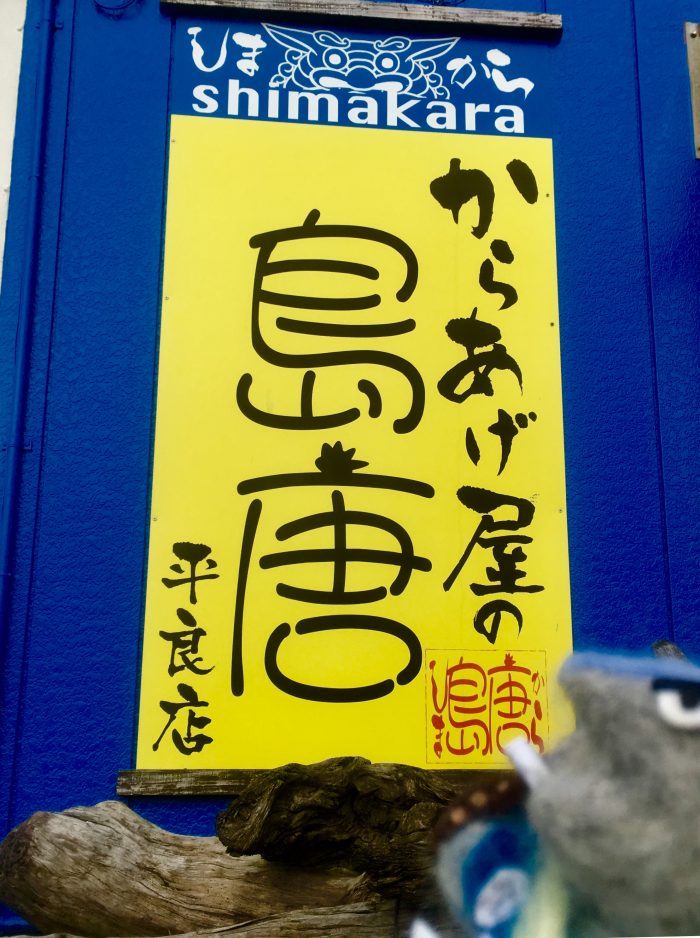 しまから
shimakara
からあげ屋の
島唐
平良店
島唐
しまから